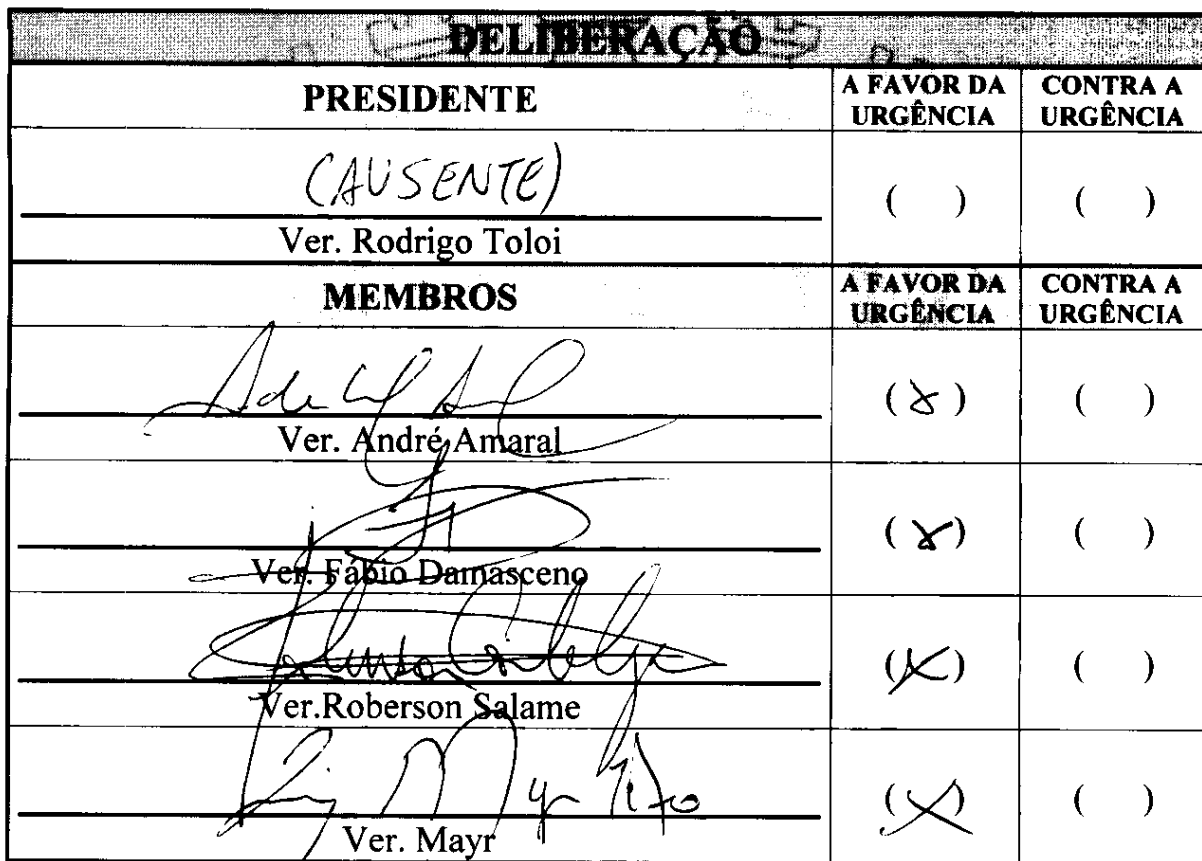 DELIBERAÇÃO
PRESIDENTE A FAVOR DA URGÊNCIA CONTRA A URGÊNCIA
(AUSENTE)
Ver. Rodrigo Toloi ( ) ( )
MEMBROS A FAVOR DA URGÊNCIA CONTRA A URGÊNCIA
Ver. André Amaral (X) ( )
Ver. Fábio Damasceno (X) ( )
Ver.Roberson Salame (X) ( )
Ver. Mayr (X) ( )